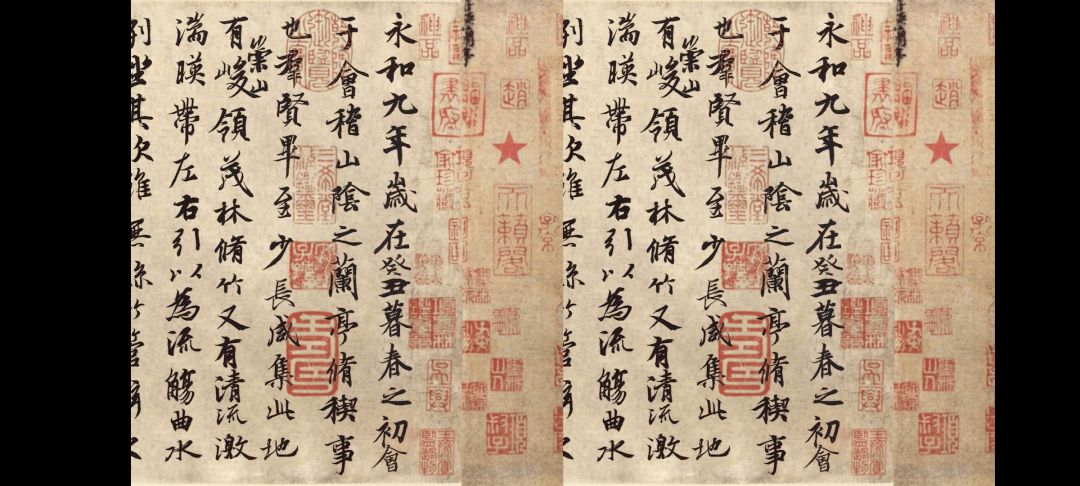 永和九年歲在癸丑暮春之初會
于會稽山陰之蘭亭脩稧事
也羣賢畢至少長咸集此地
有崇山峻領茂林脩竹又有清流激
湍暎帶左右引以為流觴曲水
列坐其次雖無絲竹管
神品
趙
永和九年歲在癸丑暮春之初會
于會稽山陰之蘭亭脩稧事
也羣賢畢至少長咸集此地
有崇山峻領茂林脩竹又有清流激
湍暎帶左右引以為流觴曲水
列坐其次雖無絲竹管
神品
趙